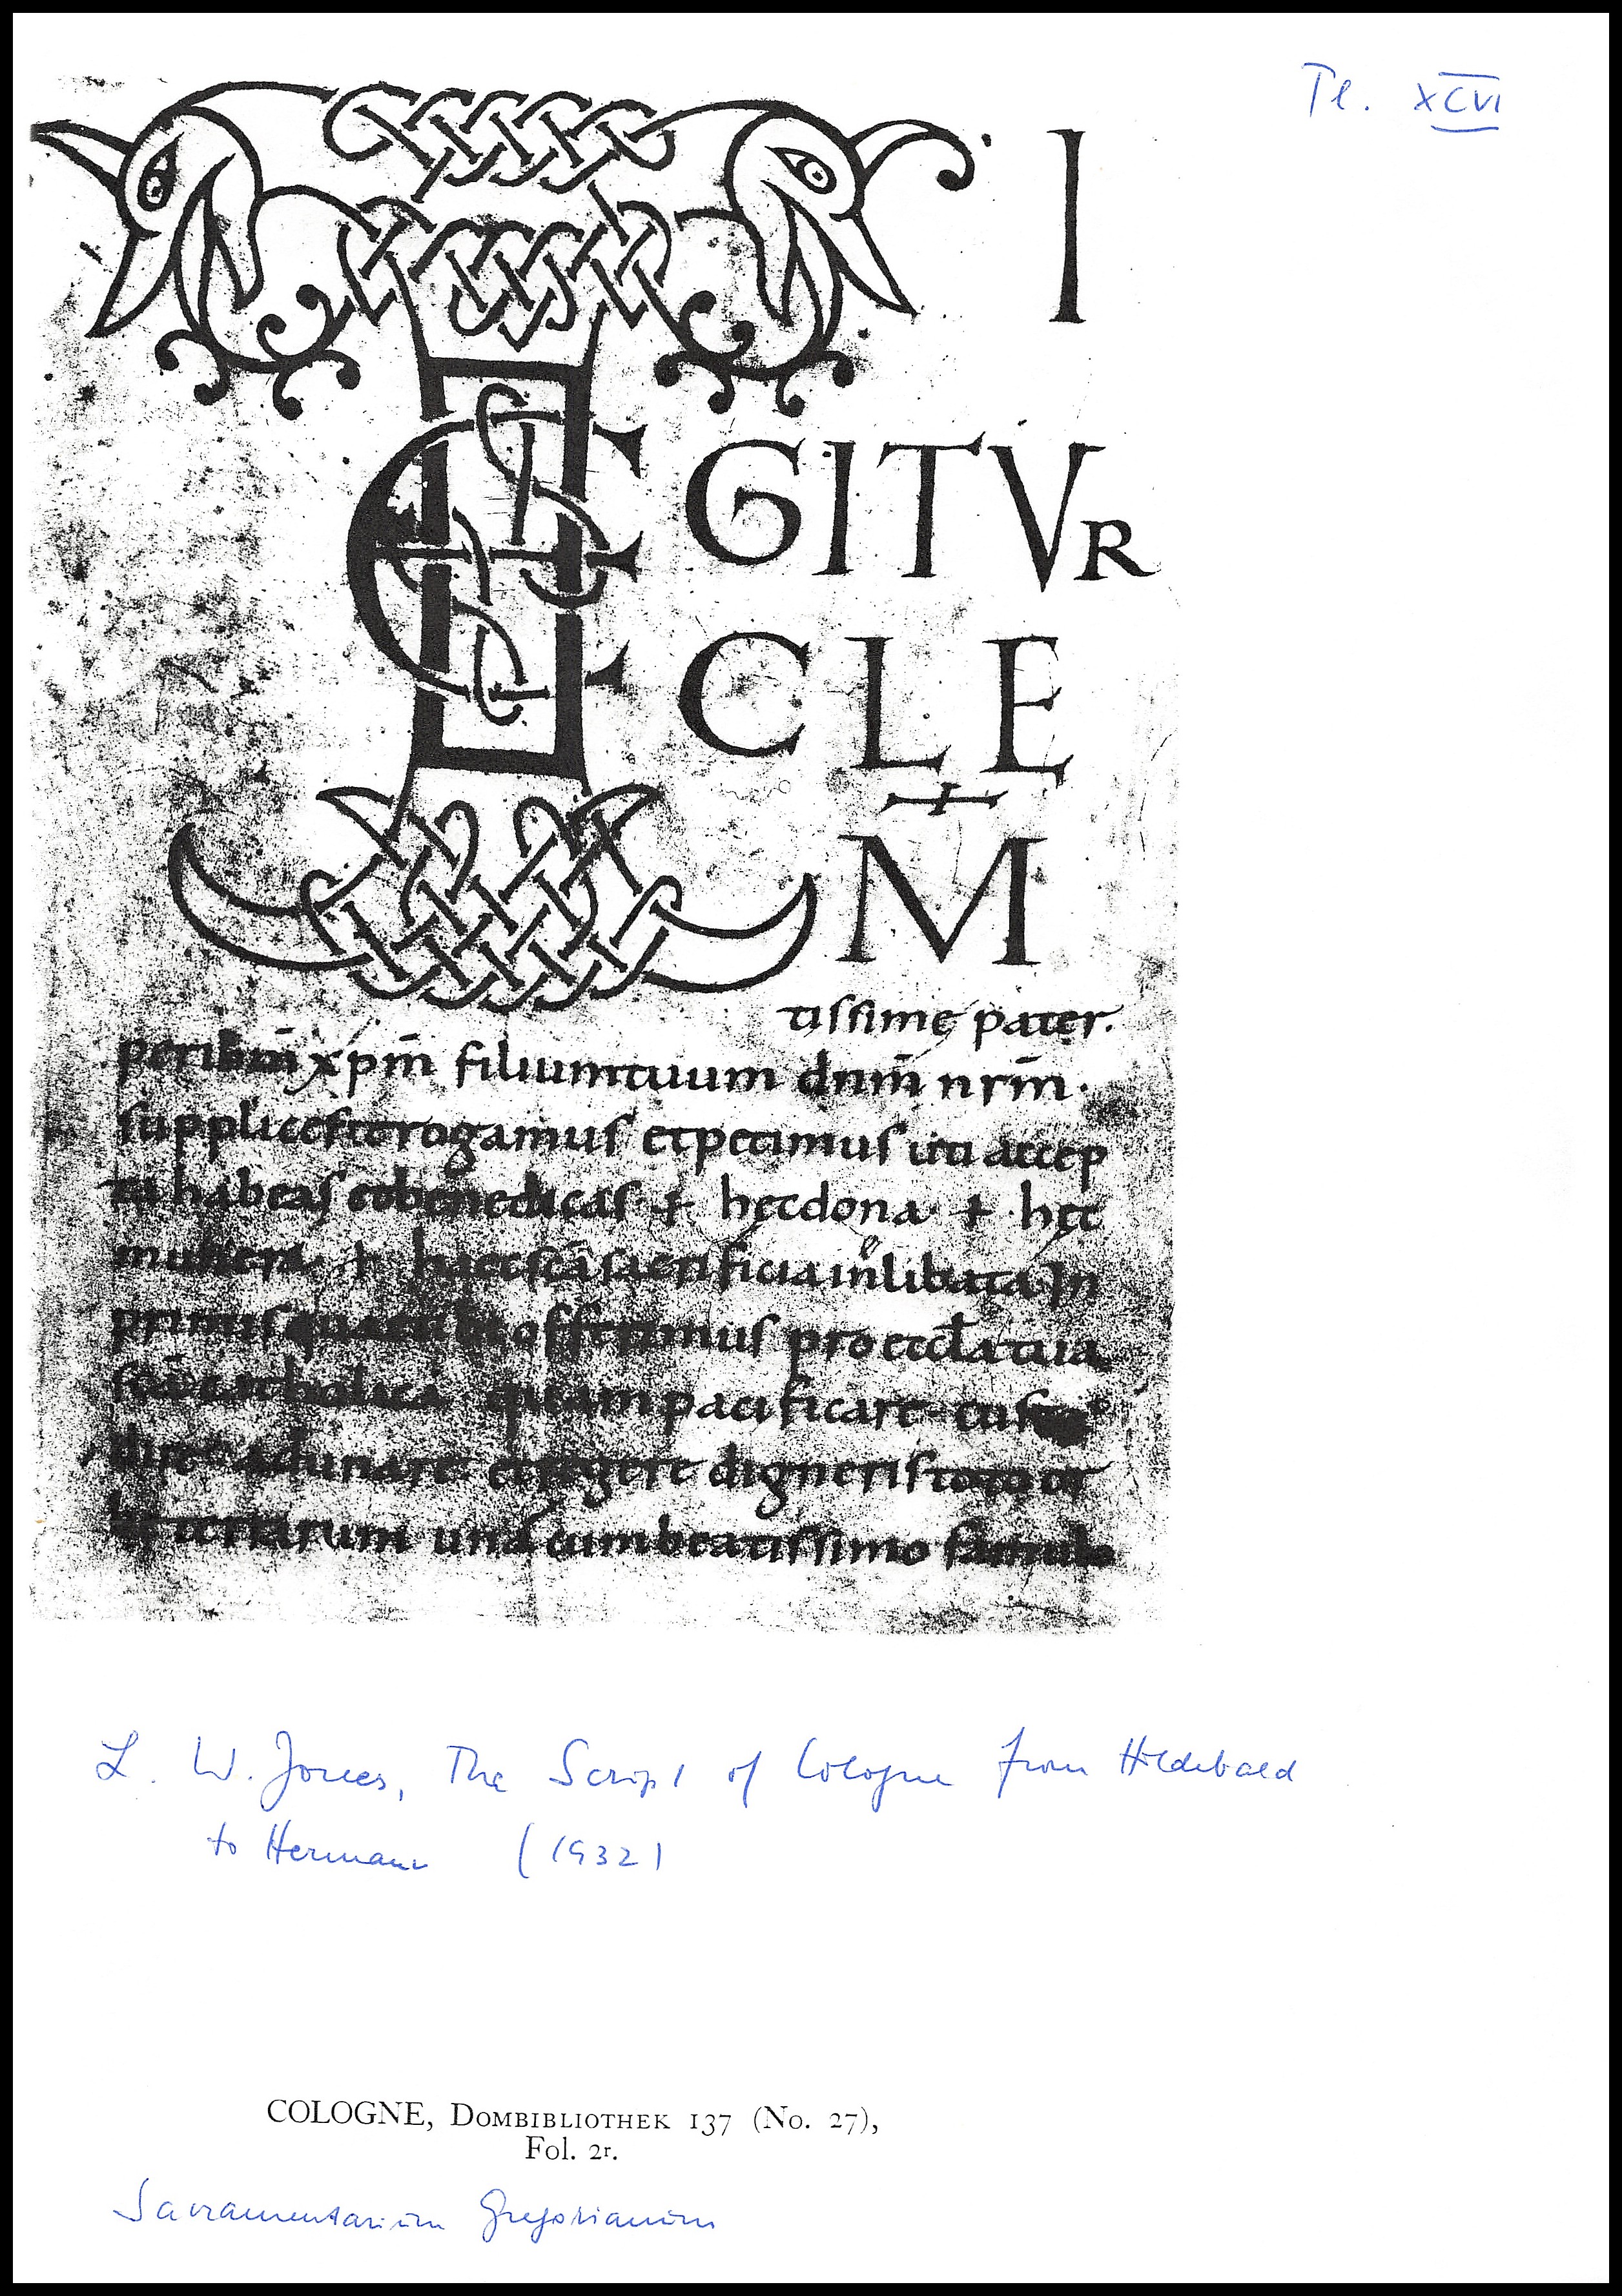 Pl. XCVI
TE I
GITVR
CLE
M
tissimę pater.
per ihm̄ xp̄m filium tuum dnm̄ nrm̄.
supplices te rogamus et petimus uti accep
ta habeas et benedicas + hęc dona + hęc
munera + haec scā sacrificia inlibata In
primis quae tibi offerimus pro eccla tua
scā catholica quam pacificare custo
dire adunare et regere digneris toto or
be terrarum una cum beatissimo famulo
L. W. Jones, The Script of Cologne from Hildebald
to Hermann (1932)
COLOGNE, Dombibliothek 137 (No. 27),
Fol. 2r.
Sacramentarium Gregorianum